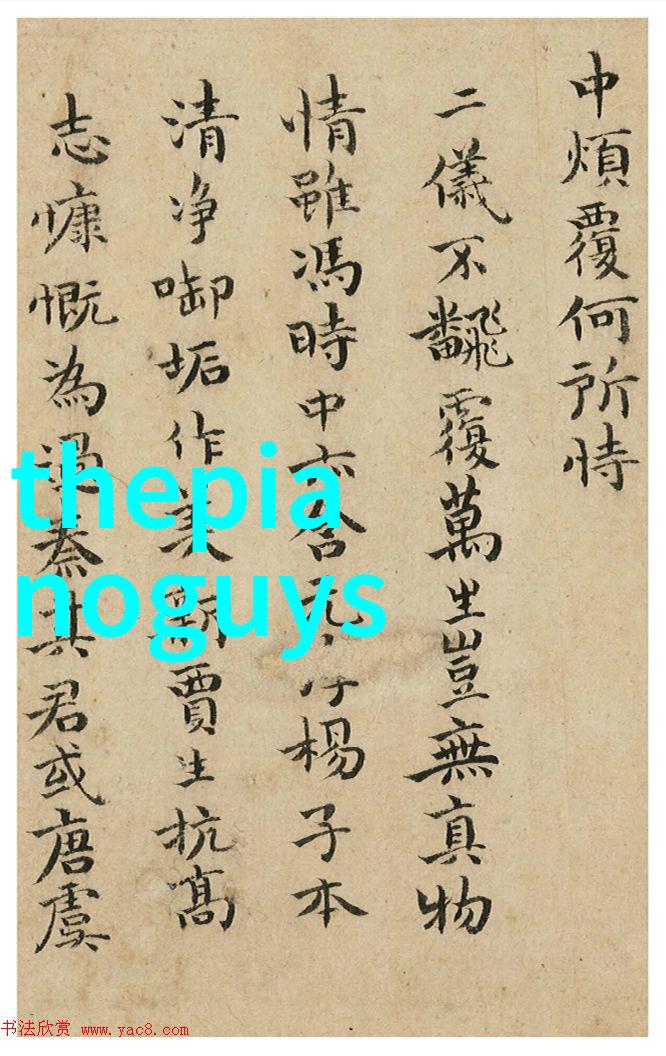 中煩覆何所恃
二儀不飜覆萬生豈無真物
情雖馮時中亦含元
楊子本
清净啣垢作美新賈生抗高
志慷慨為過秦其君或唐虞
thepia
noguys
书法欣赏 www.yac8.com